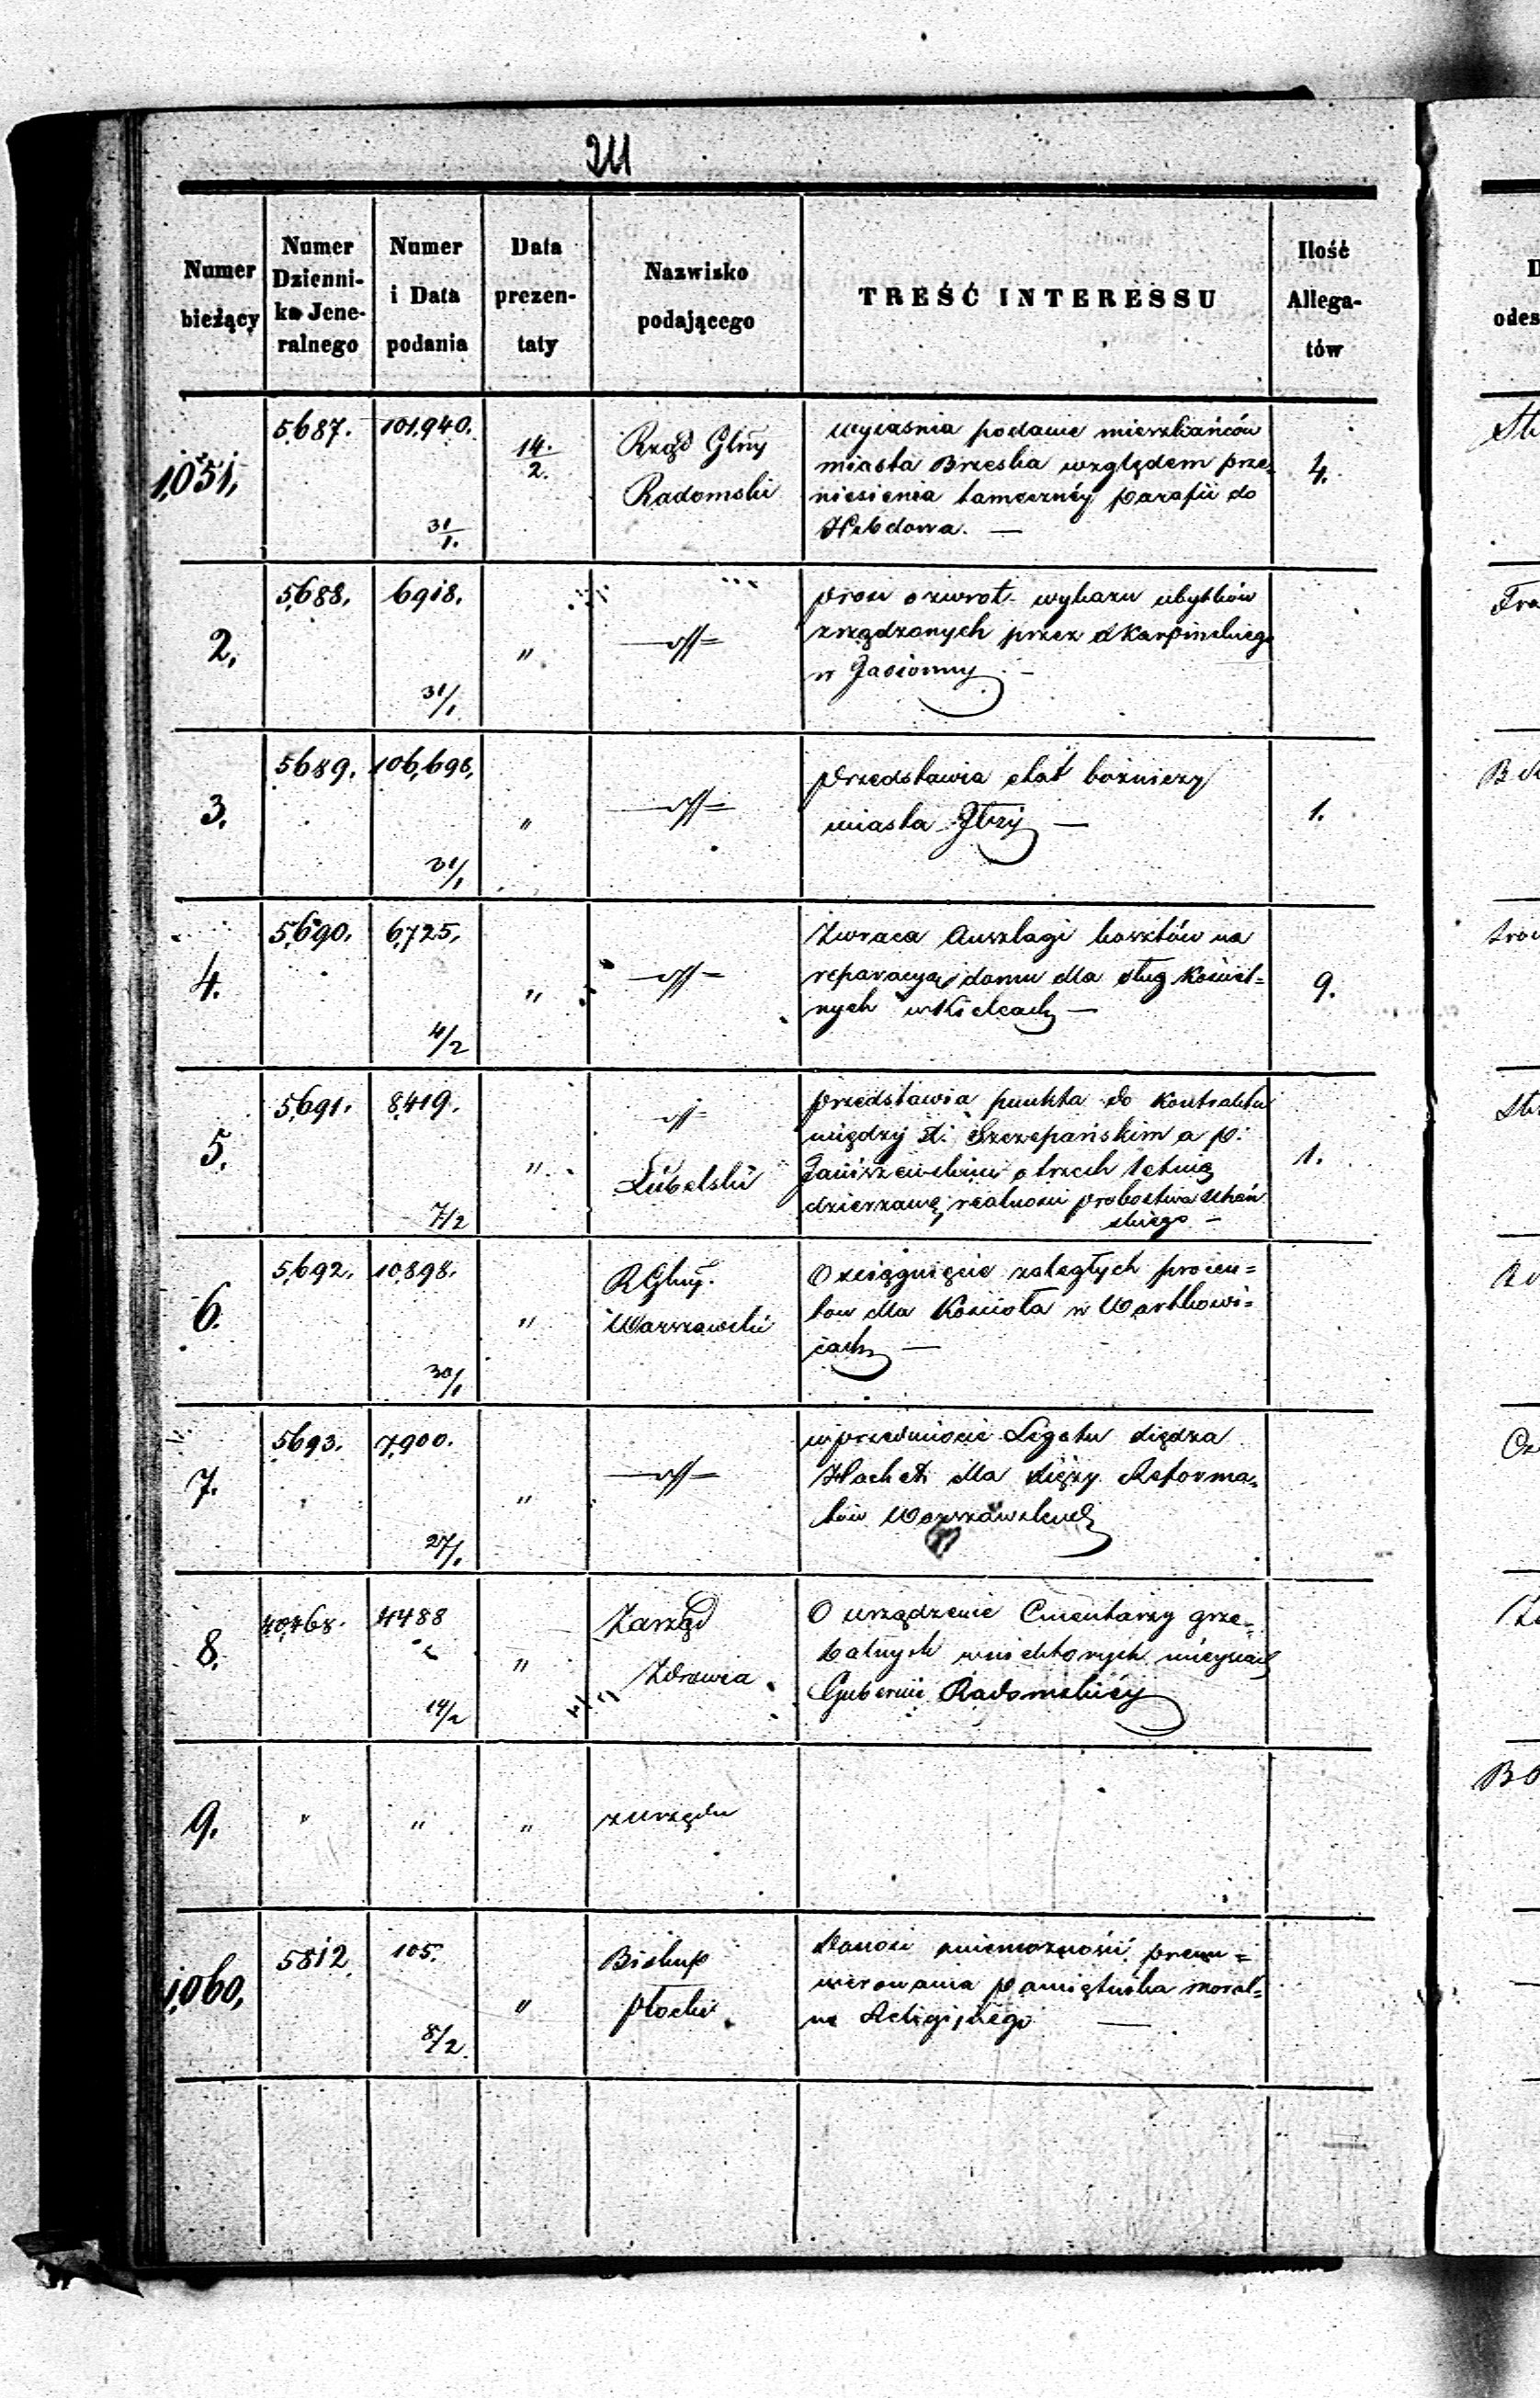 211
Numer bieżący
Numer Dzienni- ka Jene- ralnego
Numer i Data podania
Data prezen- taty
Nazwisko podającego
TREŚĆ INTERESSU
Ilość Allega- tów
odes
1,051,
5,687.
101,940.
31/1.
14./2.
Rząd Gbny
Radomski
wyjaśnia podanie mieszkańców
miasta Brzeska względem prze-
niesienia tameczney parafii do
Hebdowa. —
4.
2,
5,688,
6918,
31/1
"
—//—
prosi o zwrot wykazu ubytków
zrządzonych przez Karpinskiego
w Jasionny —
3.
5689.
106,696,
31/1
"
—//—
przedstawia etat bożnicy
miasta Iłży —
1.
4.
5,690,
6,725,
4/2
"
—//—
Zwraca Anszlagi kosztów na
reparacyą domu dla sług Kościel=
nych w Kielcach —
9.
5.
5,691.
8,419.
7/2
"
—//—
Lubelski
przedstawia punkta do Kontraktu
między X. Szczepańskim a p.
Janiszewskim o trzech letnią
dzierzawę realnosci probostwa
skiego —
1.
6.
5,692.
10,898.
30/1
"
R Gbny.
Warszawski
O ściągnięcie zaległych procen=
tow dla Kościoła w Wartkowi=
cach —
7.
5693.
7,900.
27/1
"
—//—
w przedmiocie Legatu księdza
dla Księży Reforma-
tów Warszawskich
8.
40,468.
4488
14/2
"
Zarząd
Zdrowia
O urządzenie Cmentarzy grze-
balnych w niektorych mieyscach
Gubernii Radomskiéy
9.
"
"
"
z urzędu
1,060,
5812
105.
8/2
"
Biskup
Płocki
donosi o niemożności prenu=
merowania Pamiętnika moral=
no Religijnego —